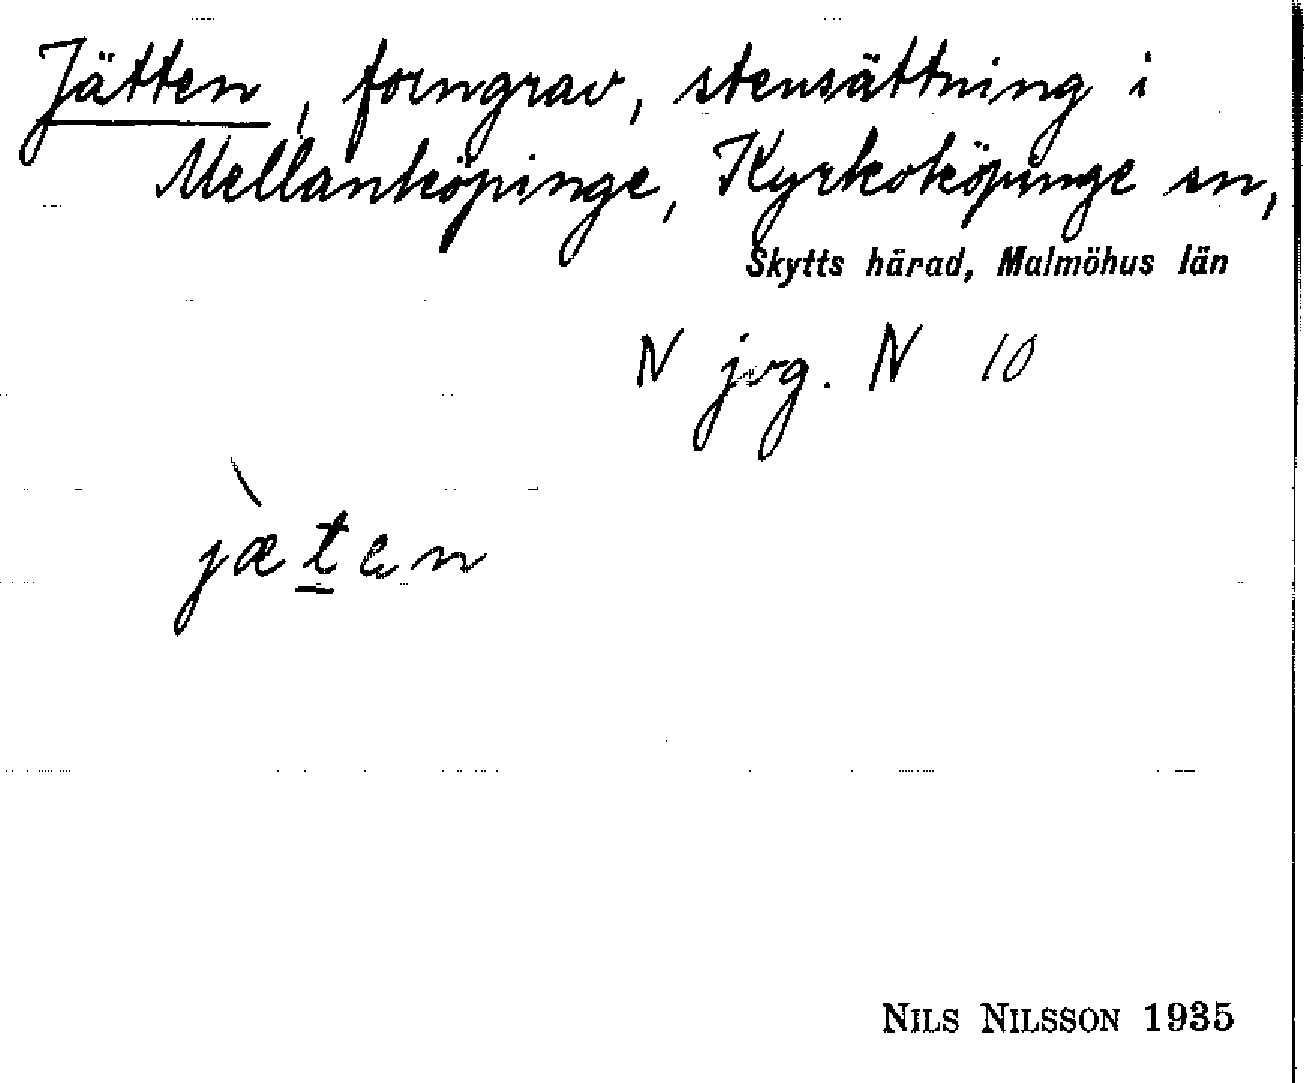 Jätten, forngrav, stensättning i
Mellanköpinge, Kyrkoköpinge sn,
Skytts härad, Malmöhus län
N jvg. N 10
jæ̀t̲en
NILS NILSSON 1935